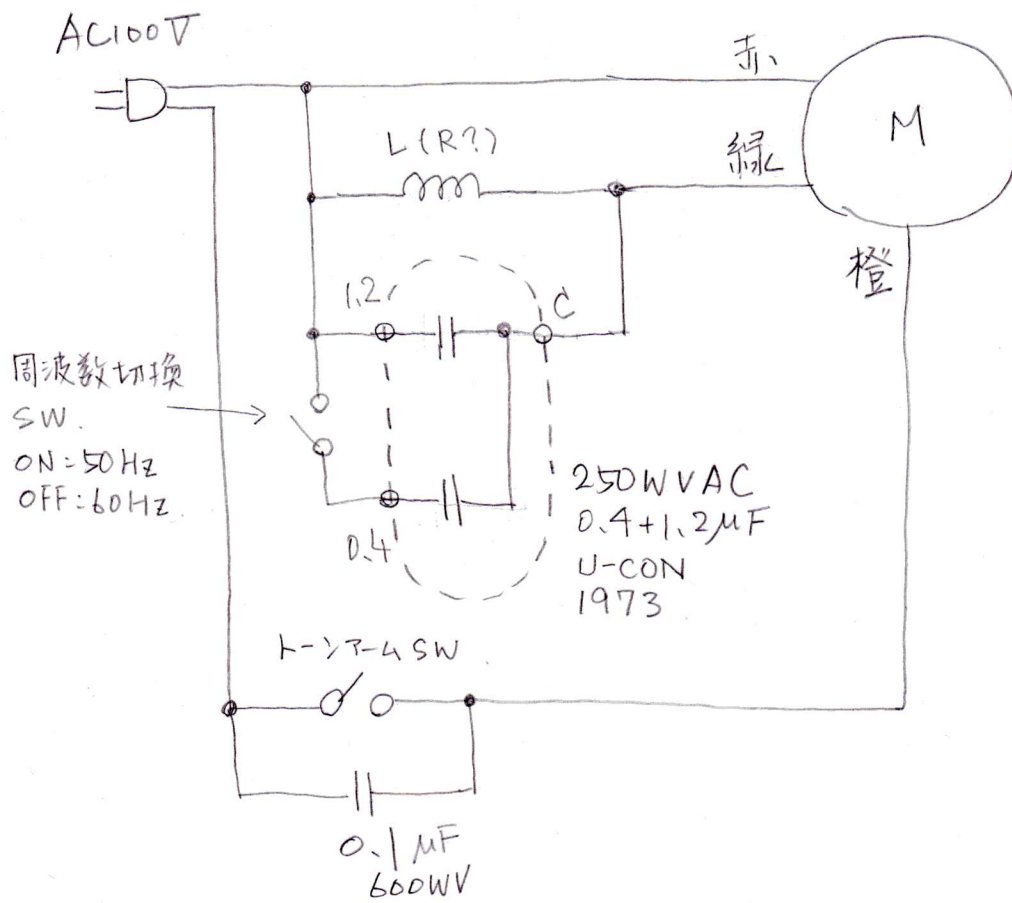 AC100V
赤
M
L(R?)
緑
橙
1.2
C
周波数切換
SW.
ON:50Hz
OFF:60Hz.
0.4
250WVAC
0.4+1.2μF
U-CON
1973
トーンアームSW
0.1μF
600WV